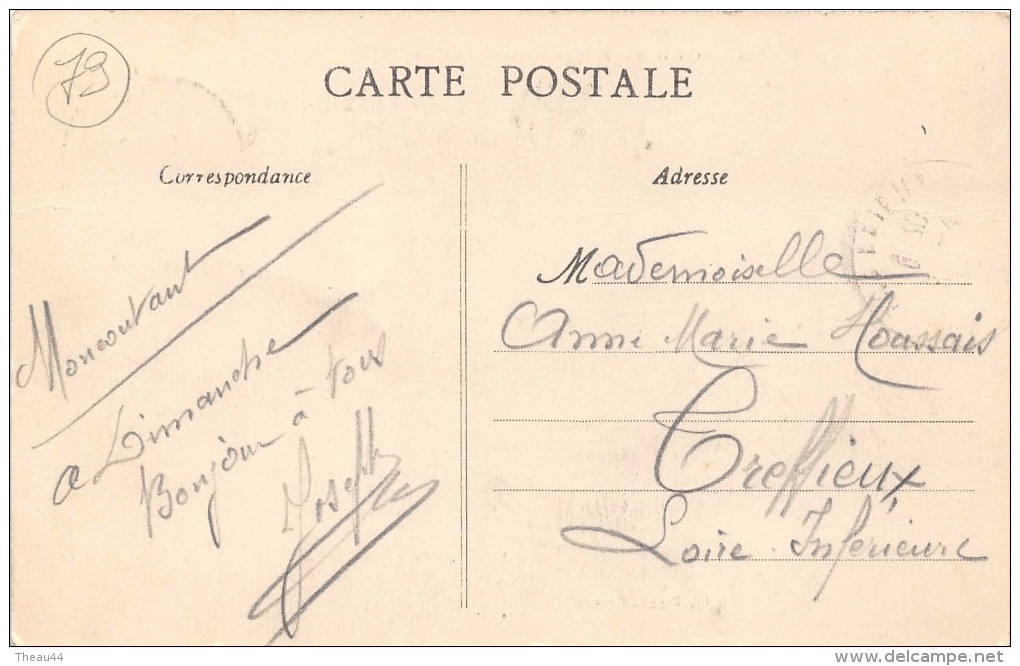 79
CARTE POSTALE
Correspondance
Adresse
Moncoutant
a Dimanche
Bonjour à tous
Joseph
Mademoiselle
Anne Marie Houssais
Treffieux
Loire Inférieure
Theau44
delcampe.net